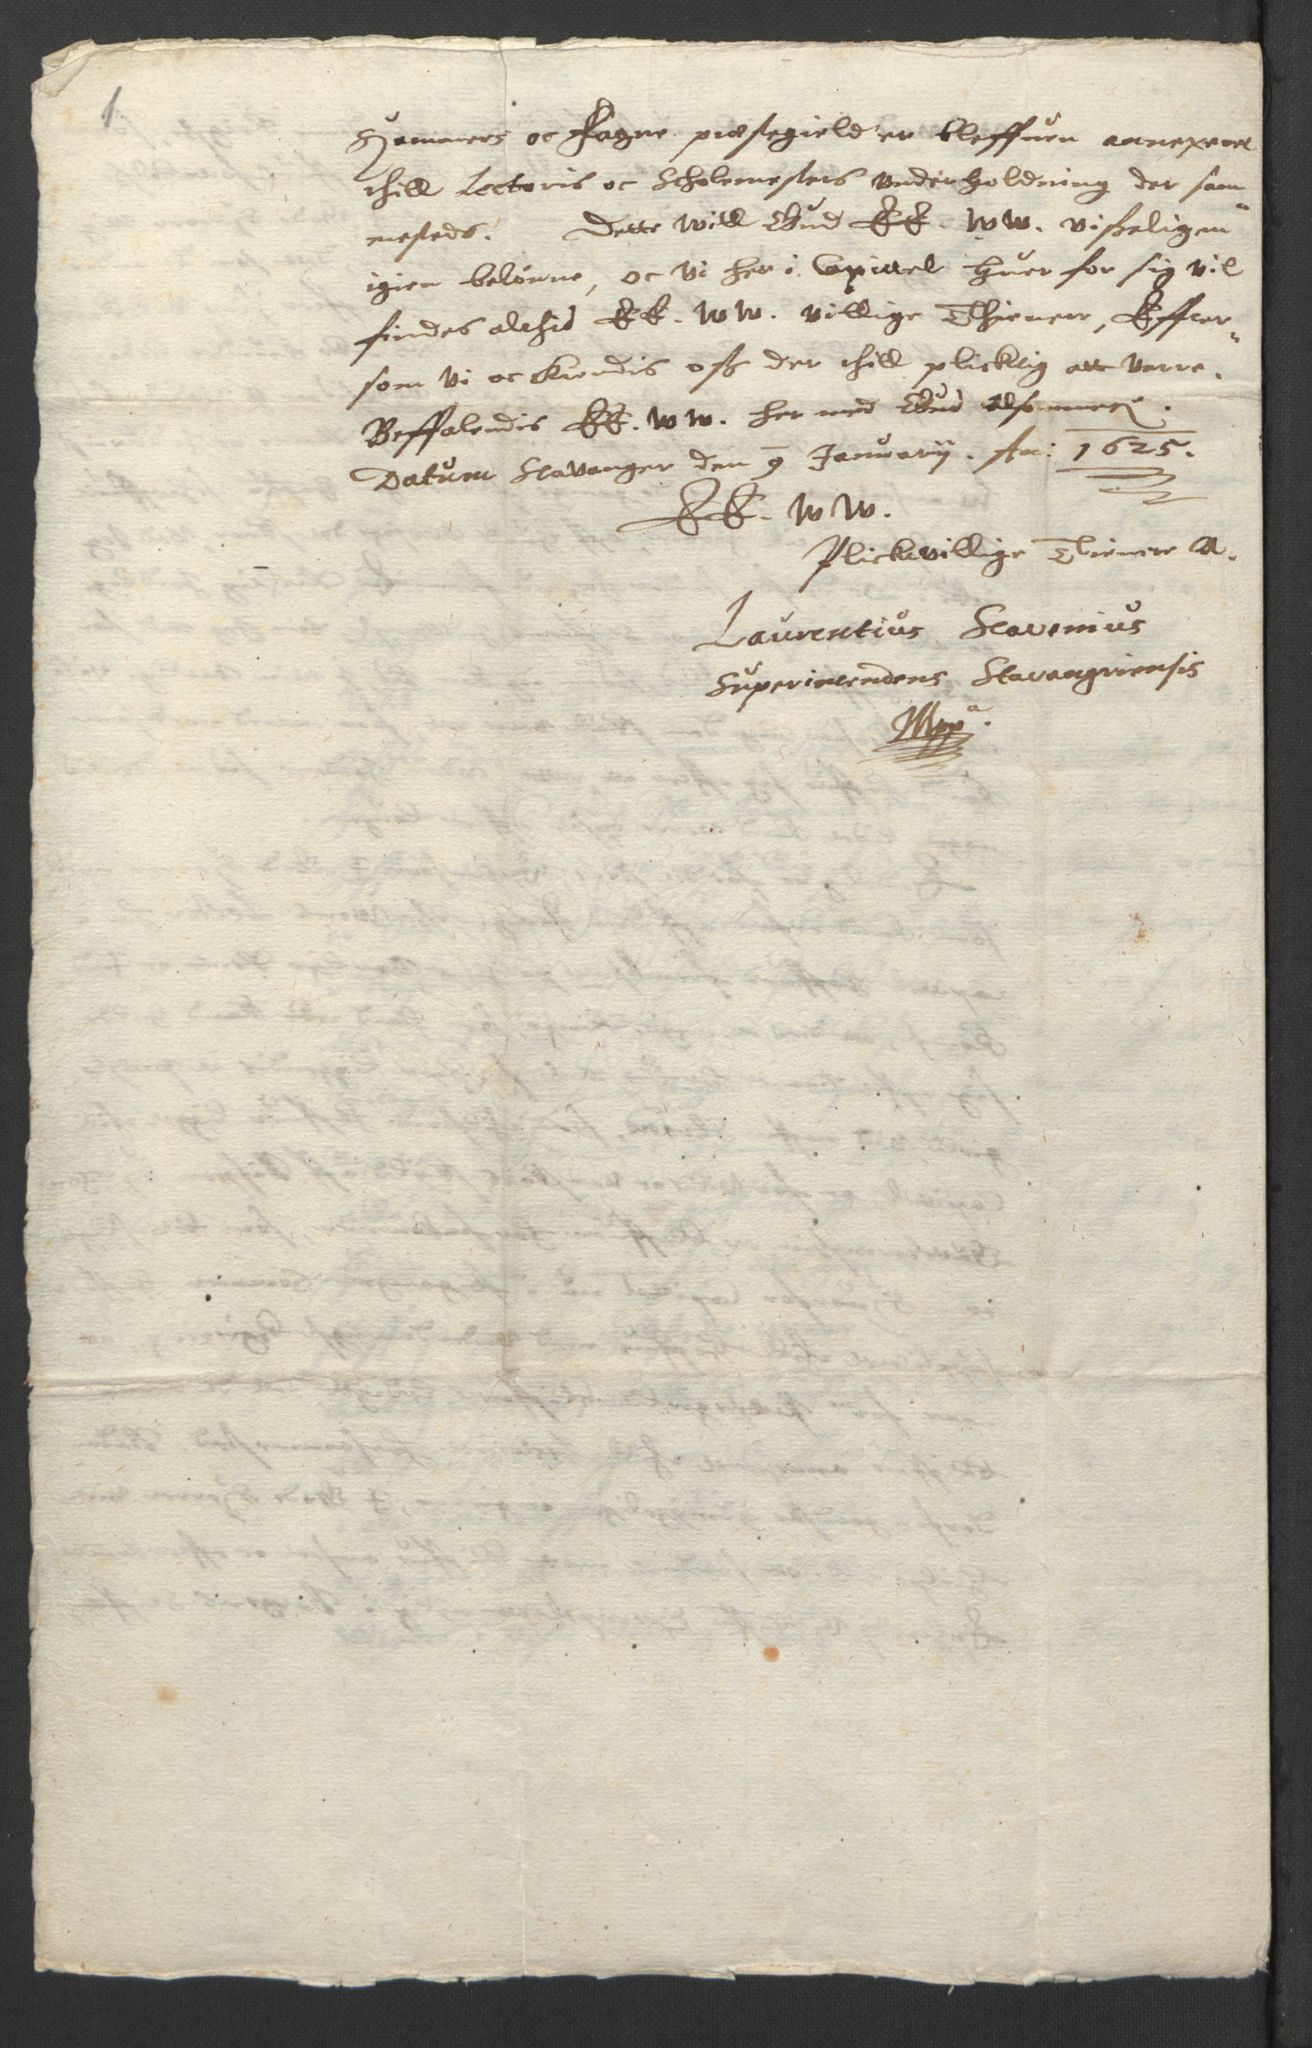 1
Hammers oc Fagne præstegield er bleffuen annexeret
thill Lectoris oc Scholemesters underholdning der sam=
mesteds. Dette will Gud EE. WW. visseligen
igien belønne, oc vi her i Capittel huer for sig vil
findes altid EE. WW. villige Thienere, Effter=
som vi oc kiendis oss der thill plicktig att være.
Beffalendis EE. WW. her med Gud
Datum Stavanger den 9 Januarij. An: 1625.
EE. WW.
Plicktvillige Tienere A.
Laurentius Scavenius
Superintendens Stavangriensis
Mppa.